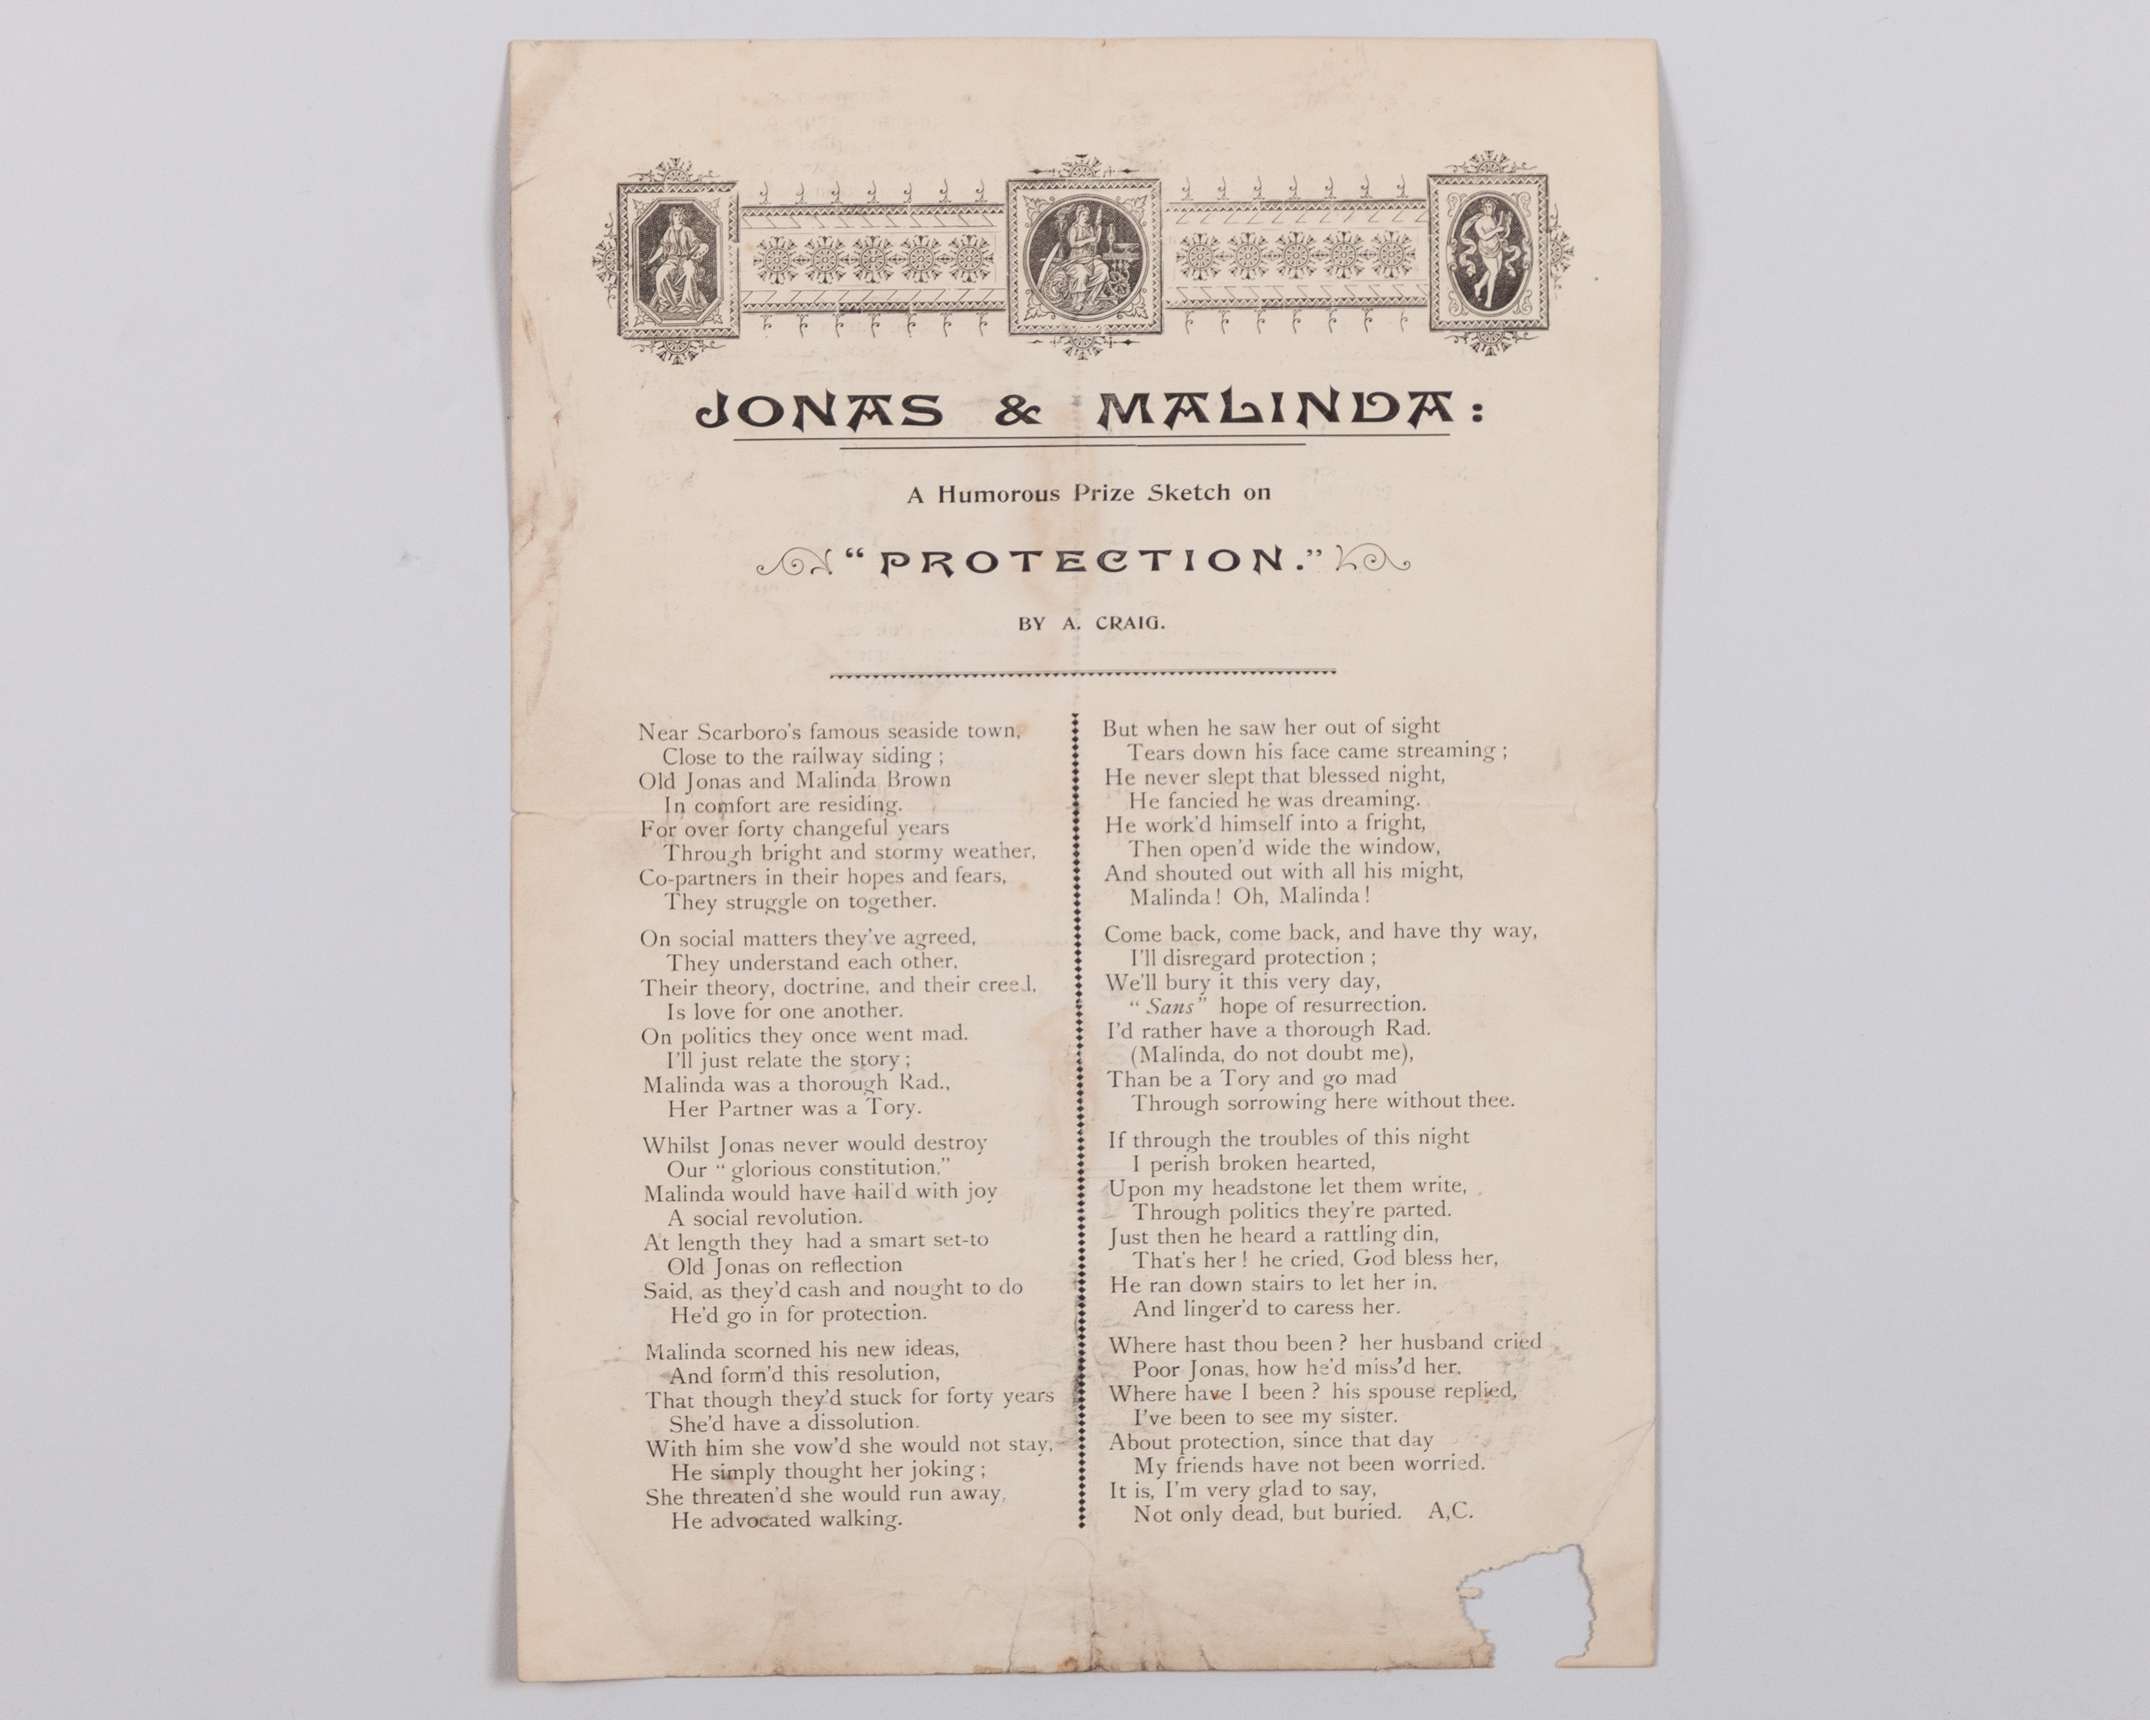 JONAS & MALINDA:
A Humorous Prize Sketch on
"PROTECTION."
BY A. CRAIG.
Near Scarboro's famous seaside town,
Close to the railway siding ;
Old Jonas and Malinda Brown
In comfort are residing.
For over forty changeful years
Through bright and stormy weather,
Co-partners in their hopes and fears,
They struggle on together.
On social matters they've agreed,
They understand each other,
Their theory, doctrine, and their creed,
Is love for one another.
On politics they once went mad.
I'll just relate the story ;
Malinda was a thorough Rad.,
Her Partner was a Tory.
Whilst Jonas never would destroy
Our " glorious constitution,"
Malinda would have hail'd with joy
A social revolution.
At length they had a smart set-to
Old Jonas on reflection
Said, as they'd cash and nought to do
He'd go in for protection.
Malinda scorned his new ideas,
And form'd this resolution,
That though they'd stuck for forty years
She'd have a dissolution.
With him she vow'd she would not stay,
He simply thought her joking ;
She threaten'd she would run away,
He advocated walking.
But when he saw her out of sight
Tears down his face came streaming ;
He never slept that blessed night,
He fancied he was dreaming.
He work'd himself into a fright,
Then open'd wide the window,
And shouted out with all his might,
Malinda ! Oh, Malinda !
Come back, come back, and have thy way,
I'll disregard protection ;
We'll bury it this very day,
" Sans" hope of resurrection.
I'd rather have a thorough Rad.
(Malinda, do not doubt me),
Than be a Tory and go mad
Through sorrowing here without thee.
If through the troubles of this night
I perish broken hearted,
Upon my headstone let them write,
Through politics they're parted.
Just then he heard a rattling din,
That's her ! he cried, God bless her,
He ran down stairs to let her in,
And linger'd to caress her.
Where hast thou been ? her husband cried
Poor Jonas, how he'd miss'd her,
Where have I been ? his spouse replied,
I've been to see my sister.
About protection, since that day
My friends have not been worried.
It is, I'm very glad to say,
Not only dead, but buried. A,C.